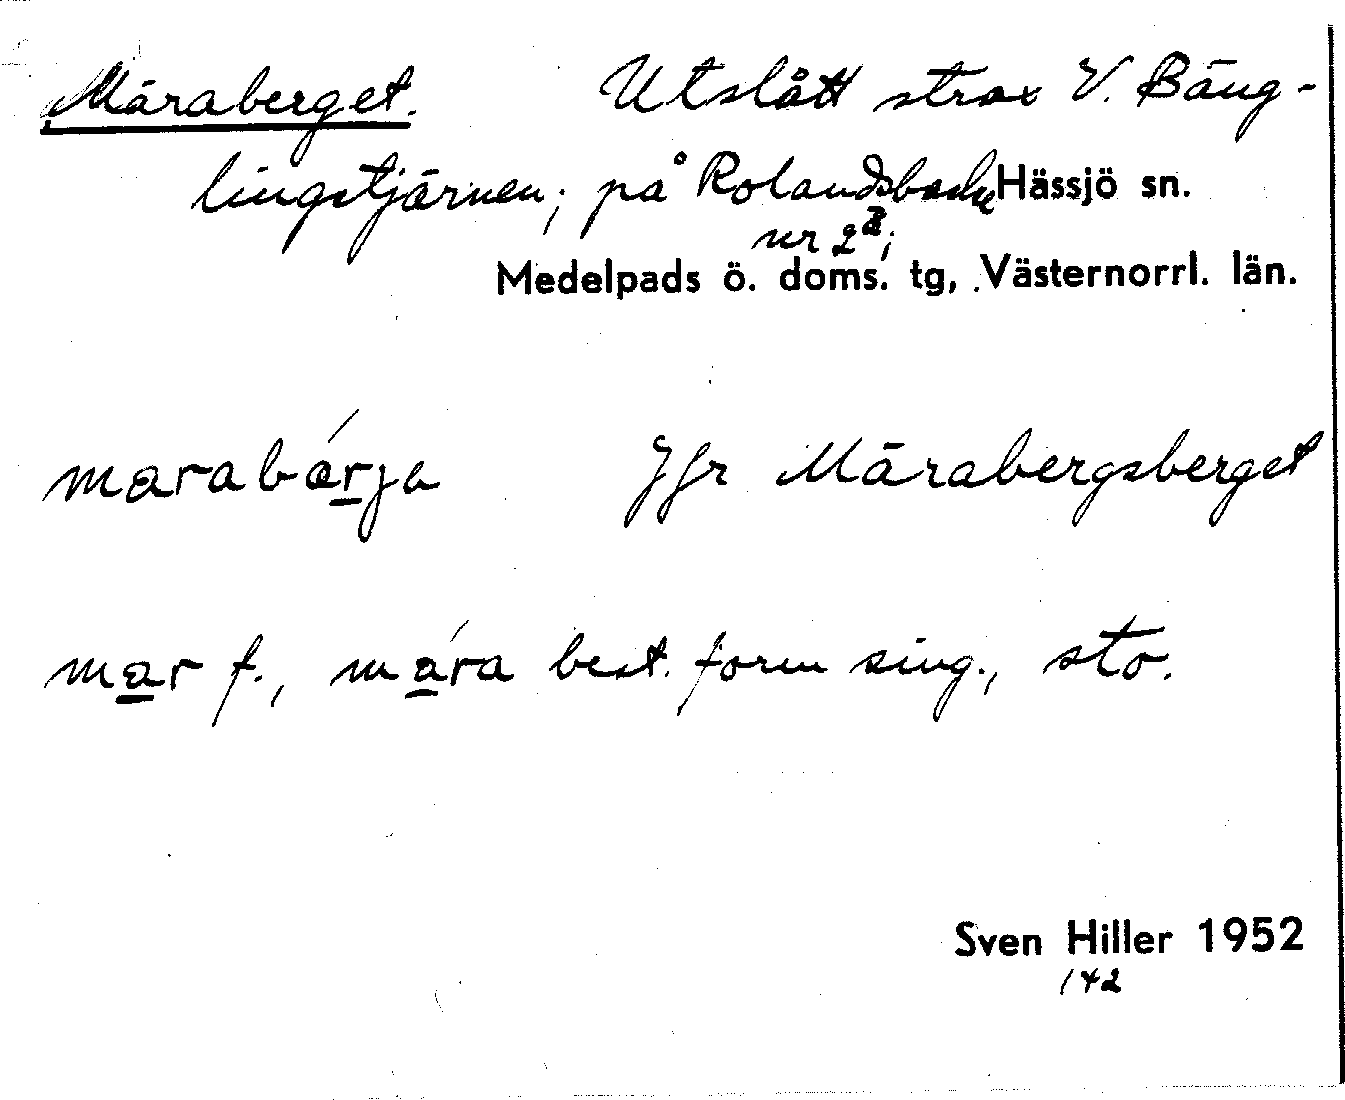 Märaberget. Utslått strax V. Bäng-
lingstjärnen; på Rolandsbacke Hässjö sn.
nr 2²;
Medelpads ö. doms. tg, Västernorrl. län.
marabærja Jfr Märabergsberget
mar f., mára best. form sing., sto.
Sven Hiller 1952
142